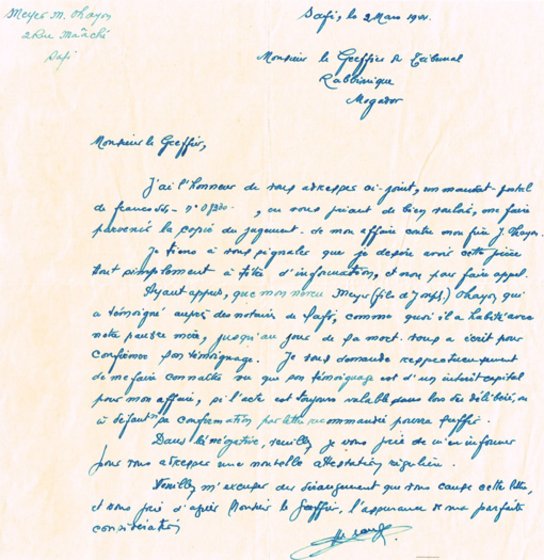 Meyer M. Ohayon
2 Rue Maâché
Safi
Safi, le 2 Mars 19
Monsieur le Greffier du Tribunal
Rabbinique
Mogador
Monsieur le Greffier,
J'ai l'honneur de vous adresser ci-joint, un mandat-postal
de francs - n° , en vous priant de bien vouloir, me faire
parvenir la copie du jugement. de mon affaire contre mon frère J. Ohayon.
Je tiens à vous signaler que je désire avoir cette pièce
tout simplement à titre d'information, et non pour faire appel.
Ayant appris, que mon neveu Meyer (fils de Joseph.) Ohayon qui
a témoigné auprès des notaires de Safi, comme quoi il a habité avec
notre pauvre mère, jusqu'au jour de sa mort. vous a écrit pour
confirmer son témoignage. Je vous demande respectueusement
de me faire connaître vu que son témoignage est d'un intérêt capital
pour mon affaire, si l'acte est toujours valable dans lors des délibérés, ou
à défaut sa confirmation par lettre recommandée pourra suffir.
Dans la négative, veuillez je vous prie de m'en informer
pour vous adresser une nouvelle attestation régulière.
Veuillez m'excuser du dérangement que vous cause cette lettre,
et vous prie d'agréer Monsieur le Greffier, l'assurance de ma parfaite
considération